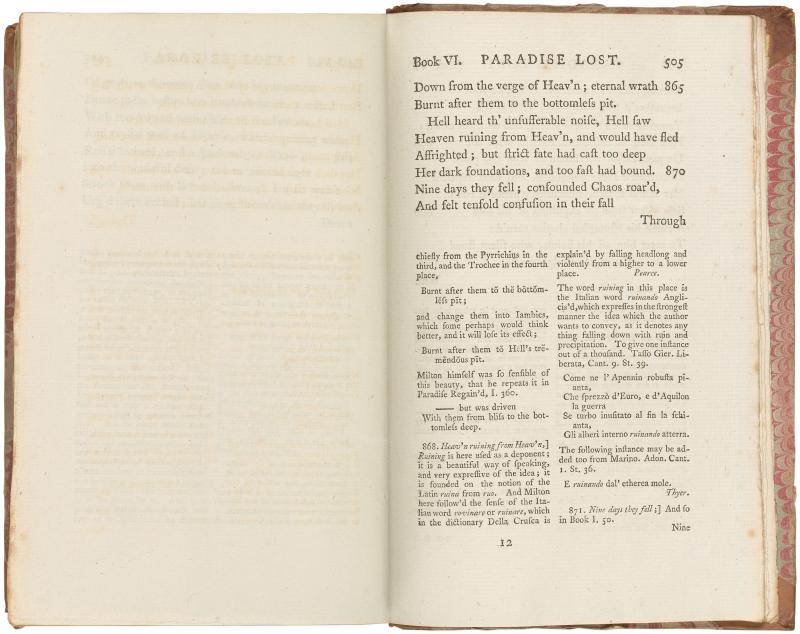 Book VI. PARADISE LOST. 505
Down from the verge of Heav'n; eternal wrath 865
Burnt after them to the bottomleſs pit.
Hell heard th' unſufferable noiſe, Hell ſaw
Heaven ruining from Heav'n, and would have fled
Affrighted; but ſtrict fate had caſt too deep
Her dark foundations, and too faſt had bound. 870
Nine days they fell; confounded Chaos roar'd,
And felt tenfold confuſion in their fall
Through
chiefly from the Pyrrichius in the
third, and the Trochee in the fourth
place,
Burnt after them tŏ thĕ bōttŏm-
lĕſs pīt;
and change them into Iambics,
which ſome perhaps would think
better, and it will loſe its effect;
Burnt after them tŏ Hēll's trĕ-
mēndŏus pīt.
Milton himſelf was ſo ſenſible of
this beauty, that he repeats it in
Paradiſe Regain'd, I. 360.
—— but was driven
With them from bliſs to the bot-
tomleſs deep.
868. Heav'n ruining from Heav'n,]
Ruining is here uſed as a deponent;
it is a beautiful way of ſpeaking,
and very expreſſive of the idea; it
is founded on the notion of the
Latin ruina from ruo. And Milton
here follow'd the ſenſe of the Ita-
lian word rovinare or ruinare, which
in the dictionary Della Cruſca is
explain'd by falling headlong and
violently from a higher to a lower
place. Pearce.
The word ruining in this place is
the Italian word ruinando Angli-
cis'd, which expreſſes in the ſtrongeſt
manner the idea which the author
wants to convey, as it denotes any
thing falling down with ruin and
precipitation. To give one inſtance
out of a thouſand. Taſſo Gier. Li-
berata, Cant. 9. St. 39.
Come ne l' Apennin robuſta pi-
anta,
Che ſprezzò d'Euro, e d'Aquilon
la guerra
Se turbo inuſitato al fin la ſchi-
anta,
Gli alberi interno ruinando atterra.
The following inſtance may be ad-
ded too from Marino. Adon. Cant.
1. St. 36.
E ruinando dal' etherea mole.
Thyer.
871. Nine days they fell;] And ſo
in Book I. 50.
Nine
12